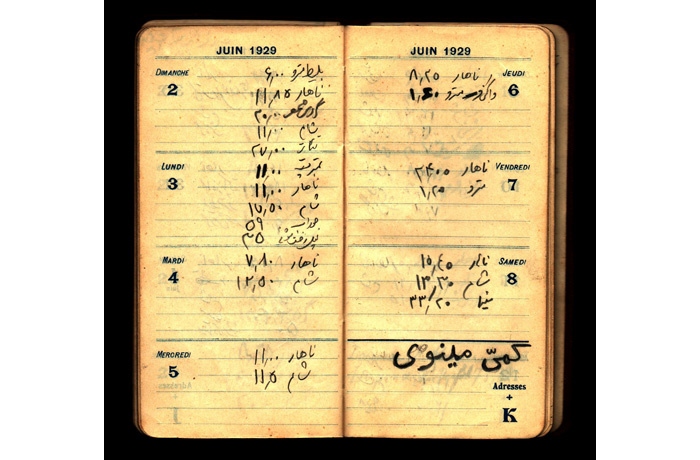 JUIN 1929
DIMANCHE
2
بلیط مترو ۶٫۰۰
ناهار ۱۱٫۸۵
۲۰٫۰۰
شام ۱۱٫۰۰
تئاتر ۲۷٫۰۰
LUNDI
3
۱۱٫۰۰
ناهار ۱۱٫۰۰
شام ۱۷٫۵۰
جوراب ۵۹
۳۵
MARDI
4
ناهار ۷٫۸۰
شام ۱۲٫۵۰
MERCREDI
5
ناهار ۱۱٫۰۰
شام ۱۱٫۵
JUIN 1929
JEUDI
6
ناهار ۸٫۲۵
مترو
VENDREDI
7
ناهار
مترو ۱٫۲۰
SAMEDI
8
ناهار ۱۵٫۴۵
شام ۱۳٫۳۰
سینما ۳۳٫۲۰
کمّی مینوی
Adresses
+
K